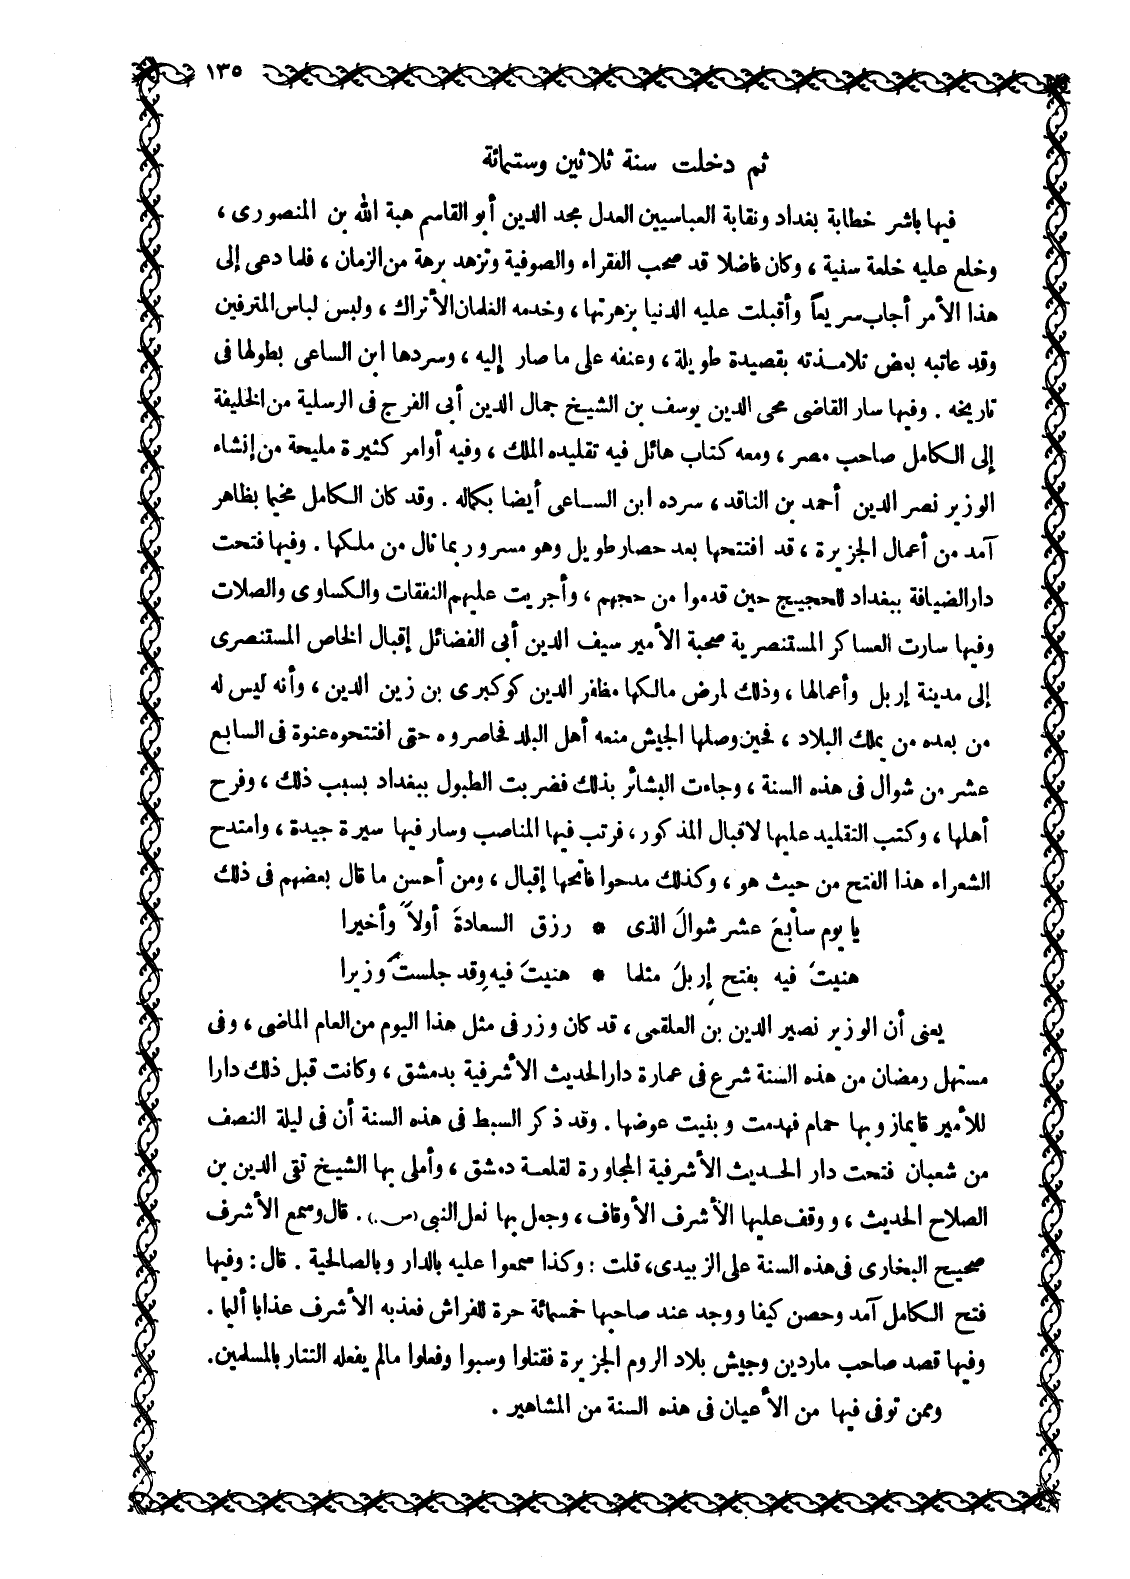 ١٣٥
ثم دخلت سنة ثلاثين وستمائة
فيها باشر خطابة بغداد ونقابة العباسيين العدل مجد الدين أبو القاسم هبة الله بن المنصورى ،
وخلع عليه خلعة سنية ، وكان فاضلا قد صحب الفقراء والصوفية وتزهد برهة من الزمان ، فلما دعى إلى
هذا الأمر أجاب سريعاً وأقبلت عليه الدنيا بزهرتها ، وخدمه الغلمان الأتراك ، ولبس لباس المترفين
وقد عاتبه بعض تلامذته بقصيدة طويلة ، وعنفه على ما صار إليه ، وسردها ابن الساعى بطولها فى
تاريخه . وفيها سار القاضى محى الدين يوسف بن الشيخ جمال الدين أبى الفرج فى الرسلية من الخليفة
إلى الكامل صاحب مصر ، ومعه كتاب هائل فيه تقليده الملك ، وفيه أوامر كثيرة مليحة من إنشاء
الوزير نصر الدين أحمد بن الناقد ، سرده ابن الساعى أيضا بكماله . وقد كان الكامل مخيما بظاهر
آمد من أعمال الجزيرة ، قد افتتحها بعد حصار طويل وهو مسرور بما نال من ملكها . وفيها فتحت
دار الضيافة ببغداد للحجيج حين قدموا من حجهم ، وأجريت عليهم النفقات والكساوى والصلات
وفيها سارت العساكر المستنصرية صحبة الأمير سيف الدين أبى الفضائل إقبال الخاص المستنصرى
إلى مدينة إربل وأعمالها ، وذلك لمرض مالكها مظفر الدين كوكبرى بن زين الدين ، وأنه ليس له
من بعده من يملك البلاد ، فحين وصلها الجيش منعه أهل البلد فحاصروه حتى افتتحوه عنوة فى السابع
عشر من شوال فى هذه السنة ، وجاءت البشائر بذلك فضربت الطبول ببغداد بسبب ذلك ، وفرح
أهلها ، وكتب التقليد عليها لاقبال المذكور ، فرتب فيها المناصب وسار فيها سيرة جيدة ، وامتدح
الشعراء هذا الفتح من حيث هو ، وكذلك مدحوا فاتحها إقبال ، ومن أحسن ما قال بعضهم فى ذلك
يا يوم سابعَ عشر شوالَ الذى * رزق السعادةَ أولاً وأخيرا
هنيتَ فيه بفتح إربلَ مثلما * هنيتَ فيه وقد جلستَ وزيرا
يعنى أن الوزير نصير الدين بن العلقمى ، قد كان وزر فى مثل هذا اليوم من العام الماضى ، وفى
مستهل رمضان من هذه السنة شرع فى عمارة دار الحديث الأشرفية بدمشق ، وكانت قبل ذلك دارا
للأمير قايماز وبها حمام فهدمت وبنيت عوضها . وقد ذكر السبط فى هذه السنة أن فى ليلة النصف
من شعبان فتحت دار الحديث الأشرفية المجاورة لقلعة دمشق ، وأملى بها الشيخ تقى الدين بن
الصلاح الحديث ، ووقف عليها الأشرف الأوقاف ، وجعل بها نعل النبى (ص.) . قال وسمع الأشرف
صحيح البخارى فى هذه السنة على الزبيدى ، قلت : وكذا سمعوا عليه بالدار وبالصالحية . قال : وفيها
فتح الكامل آمد وحصن كيفا ووجد عند صاحبها خمسمائة حرة للفراش فعذبه الأشرف عذابا أليما .
وفيها قصد صاحب ماردين وجيش بلاد الروم الجزيرة فقتلوا وسبوا وفعلوا مالم يفعله التتار بالمسلمين .
وممن توفى فيها من الأعيان فى هذه السنة من المشاهير .